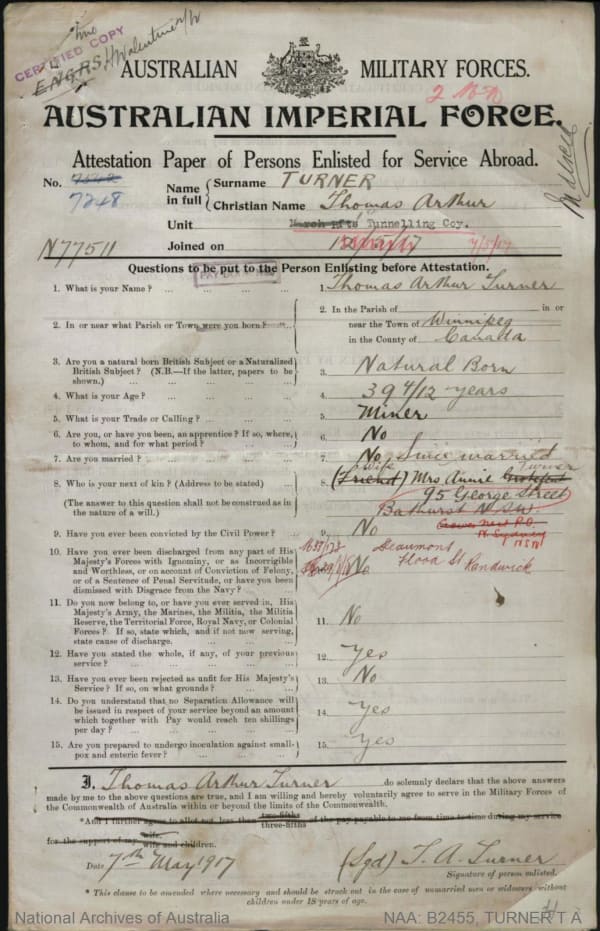 CERTIFIED COPY
ENGRS.
AUSTRALIAN MILITARY FORCES.
2 M-N
AUSTRALIAN IMPERIAL FORCE.
Attestation Paper of Persons Enlisted for Service Abroad.
No. 7248
Name in full { Surname TURNER
Christian Name Thomas Arthur
Unit March Rfts Tunnelling Coy.
N77511
Joined on 7/5/17
Questions to be put to the Person Enlisting before Attestation.
1. What is your Name? ... 1. Thomas Arthur Turner
2. In or near what Parish or Town were you born? ... 2. In the Parish of in or
near the Town of Winnipeg
in the County of Canada
3. Are you a natural born British Subject or a Naturalized
British Subject? (N.B.—If the latter, papers to be
shown.) ... 3. Natural Born
4. What is your Age? ... 4. 39 4/12 years
5. What is your Trade or Calling? ... 5. Miner
6. Are you, or have you been, an apprentice? If so, where,
to whom, and for what period? 6. No
7. Are you married? ... 7. No Since married
8. Who is your next of kin? (Address to be stated) ... 8. (Friend) Wife Mrs Annie Turner
95 George Street
(The answer to this question shall not be construed as in
the nature of a will.) Bathurst N.S.W.
Crows Nest P.O.
N. Sydney
NSW
9. Have you ever been convicted by the Civil Power? ... 9. No
Beaumont
Flood St Randwick
10. Have you ever been discharged from any part of His
Majesty's Forces with Ignominy, or as Incorrigible
and Worthless, or on account of Conviction of Felony,
or of a Sentence of Penal Servitude, or have you been
dismissed with Disgrace from the Navy? ... No
11. Do you now belong to, or have you ever served in, His
Majesty's Army, the Marines, the Militia, the Militia
Reserve, the Territorial Force, Royal Navy, or Colonial
Forces? If so, state which, and if not now serving,
state cause of discharge. ... 11. No
12. Have you stated the whole, if any, of your previous
service? ... 12. Yes
13. Have you ever been rejected as unfit for His Majesty's
Service? If so, on what grounds? 13. No
14. Do you understand that no Separation Allowance will
be issued in respect of your service beyond an amount
which together with Pay would reach ten shillings
per day? ... 14. Yes
15. Are you prepared to undergo inoculation against small-
pox and enteric fever? ... 15. Yes
I, Thomas Arthur Turner do solemnly declare that the above answers
made by me to the above questions are true, and I am willing and hereby voluntarily agree to serve in the Military Forces of
the Commonwealth of Australia within or beyond the limits of the Commonwealth.
*And I further agree to allot not less than two-fifths three-fifths of the pay payable to me from time to time during my service
for the support of my wife. wife and children.
Date 7th May 1917 (Sgd) T. A. Turner
Signature of person enlisted.
* This clause to be amended where necessary and should be struck out in the case of unmarried men or widowers without
children under 18 years of age.
National Archives of Australia NAA: B2455, TURNER T A